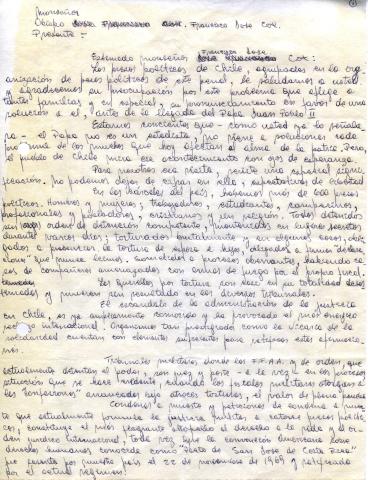 Monseñor
Obispo Francisco José Cox.
Presente.-
Estimado monseñor Francisco José Cox:
Los presos políticos de Chile, agrupados en la org
anización de presos políticos de este penal, le saludamos a usted
y agradecemos su preocupación por este problema que aflige a
tantas familias y en especial, su pronunciamiento en favor de una
solución a él, antes de la llegada del Papa Juan Pablo II
Estamos conscientes que - como usted ya lo señala
ra - el Papa no es un estadista, no viene a solucionar cada
problema de los muchos que hoy afectan el alma de la patria. Pero,
el pueblo de Chile mira ese acontecimiento con ojos de esperanza.
Para nosotros esa visita, reviste una especial signi-
ficación, no podemos dejar de cifrar en ella, expectativas de libertad
En las cárceles del país, habemos más de 400 presos
políticos. Hombres y mujeres, trabajadores, estudiantes, campesinos,
profesionales y pobladores, cristianos y sin religión. Todos detenidos
sin orden de detención competente, mantenidos en lugares secretos
durante varios días, torturados brutalmente y en algunos casos, obli-
gados a presenciar la tortura de esposa e hijo, obligados a firmar declara
ciones que nunca leímos, sometidos a procesos aberrantes, habiendo ca-
sos de compañeros amenazados con armas de fuego por el propio fiscal.
Las querellas por tortura son casi en su totalidad deses
timadas y mueren sin resultado en los diversos tribunales.
El escándalo de la administración de la justicia
en Chile, es ya ampliamente conocido y ha provocado el más enérgico
rechazo internacional. Organismos tan prestigiados como la vicaría de la
solidaridad cuentan con elementos suficientes para ratificar estas afirmacio
nes.
Tribunales militares, donde las F.F.A.A. y de orden, que
actualmente detentan el poder, son juez y parte - a la vez - en los procesos
situación que se hace evidente, cuando los fiscales militares otorgan a
las "confesiones" arrancadas bajo atroces torturas, el valor de plena prueba
Condenas a muerte y peticiones de condena a muer
te que actualmente formula la justicia militar a presos políti
cos, constituye el más flagrante atropello al derecho a la vida y al or
den jurídico internacional, toda vez que la convención americana sobre
derechos humanos conocida como "Pacto de San José de Costa Rica"
fue firmada por nuestro país el 22 de noviembre de 1969 y ratificado
por el actual régimen.